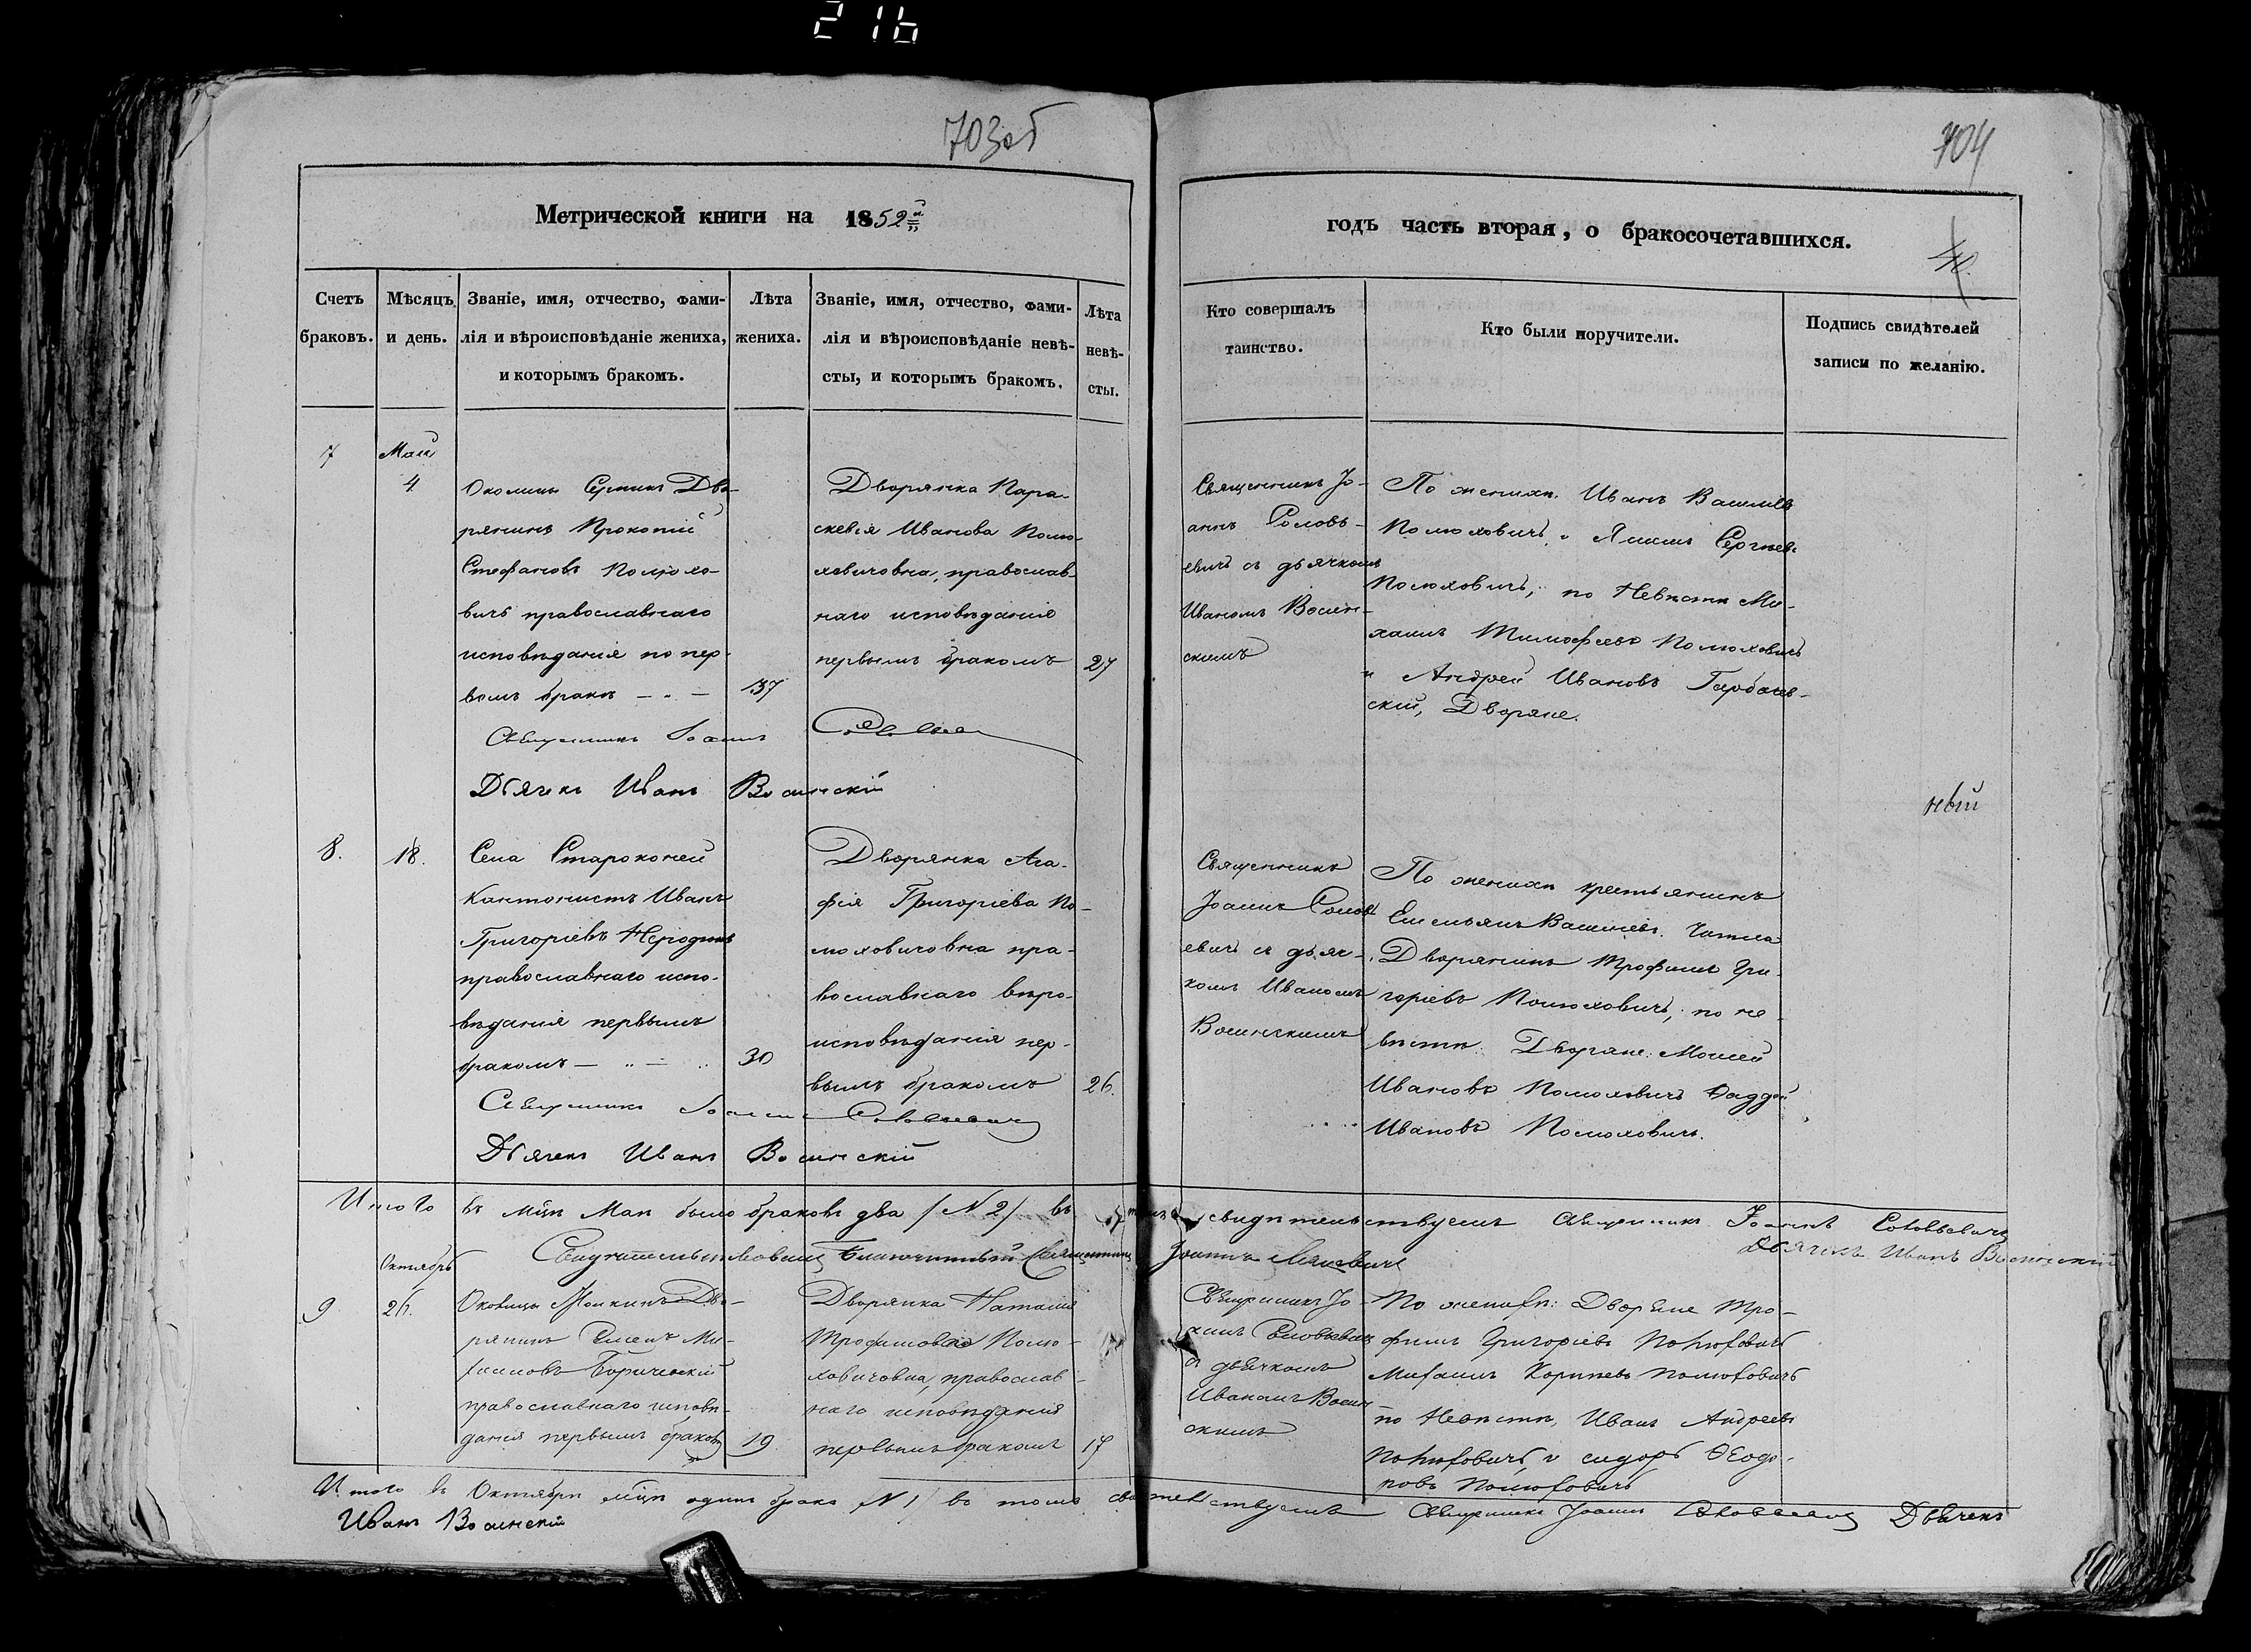 216
703об
704
40.
Метрической книги на 1852й
годъ часть вторая, о бракосочетавшихся.
Счетъ браковъ.
Мѣсяцъ и день.
Званіе, имя, отчество, фами-
лія и вѣроисповѣданіе жениха,
и которымъ бракомъ.
Лѣта
жениха.
Званіе, имя, отчество, фами-
лія и вѣроисповѣданіе невѣ-
сты, и которымъ бракомъ.
Лѣта
невѣ-
сты.
Кто совершалъ
таинство.
Кто были поручители.
Подпись свидѣтелей
записи по желанію.
7
Май
4
Околицы Серникъ Дво-
рянинъ Прокопій
Стефановъ Полюхо-
вичъ православнаго
исповѣданія по пер-
вомъ бракѣ
37
Дворянка Пара-
скевія Иванова Полю-
ховичовна, православ-
наго исповѣданія
первымъ бракомъ
27
Священникъ Іо-
аннъ Соловь-
евичъ съ дьячкомъ
Иваномъ Волин-
скимъ
По женихѣ Иванъ Васильевъ
Полюховичъ, и Якимъ Сергѣевъ
Полюховичъ; по Невѣстѣ Ми-
хаилъ Тимофеевъ Полюховичъ
и Андрей Ивановъ Горбачев-
скій, Дворяне.
Священникъ Іоаннъ
Дьячекъ Иванъ Волинскій
ный
8.
18.
Села Староконей
Кантонистъ Иванъ
Григоріевъ
православнаго испо-
вѣданія первымъ
бракомъ
30
Дворянка Ага-
фія Григоріева По-
люховичовна пра-
вославнаго вѣро-
исповѣданія пер-
вымъ бракомъ
26.
Священникъ
Іоаннъ Солов-
евичъ съ дьяч-
комъ Иваномъ
Волинскимъ
По женихѣ крестьянинъ
Емельянъ Васильевъ
Дворянинъ Трофимъ Гри-
горіевъ Полюховичъ; по не-
вѣстѣ: Дворяне: Моисей
Ивановъ Полюховичъ Фаддей
Ивановъ Полюховичъ.
Священникъ Іоаннъ Соловьевичъ
Дьячекъ Иванъ Волинскій
Итого въ мцѣ Маѣ было браковъ два /N 2/ въ томъ свидѣтельствуемъ Священникъ Іоаннъ Соловьевичъ
Дьячекъ Иванъ Волинскій
Свидѣтельствовалъ Благочинный Священникъ Іоаннъ
Октябрь
9
26.
Околицы Дво-
рянинъ Семенъ Ми-
хаиловъ
православнаго исповѣ-
данія первымъ бракомъ
19
Дворянка Наталія
Трофимова Полю-
ховичовна, православ-
наго исповѣданія
первымъ бракомъ
17
Священникъ Іо-
аннъ Соловьевичъ
съ дьячкомъ
Иваномъ Волин-
скимъ
По женихѣ: Дворяне Тро-
фимъ Григоріевъ Полюховичъ
Михаилъ Корнѣевъ Полюховичъ
по Невѣстѣ, Иванъ Андреевъ
Полюховичъ, и Сидоръ Ѳеодо-
ровъ Полюховичъ
Итого въ Октябрѣ мцѣ одинъ бракъ /N 1/ въ томъ свидѣтельствуемъ Священникъ Іоаннъ Соловьевичъ Дьячекъ
Иванъ Волинскій